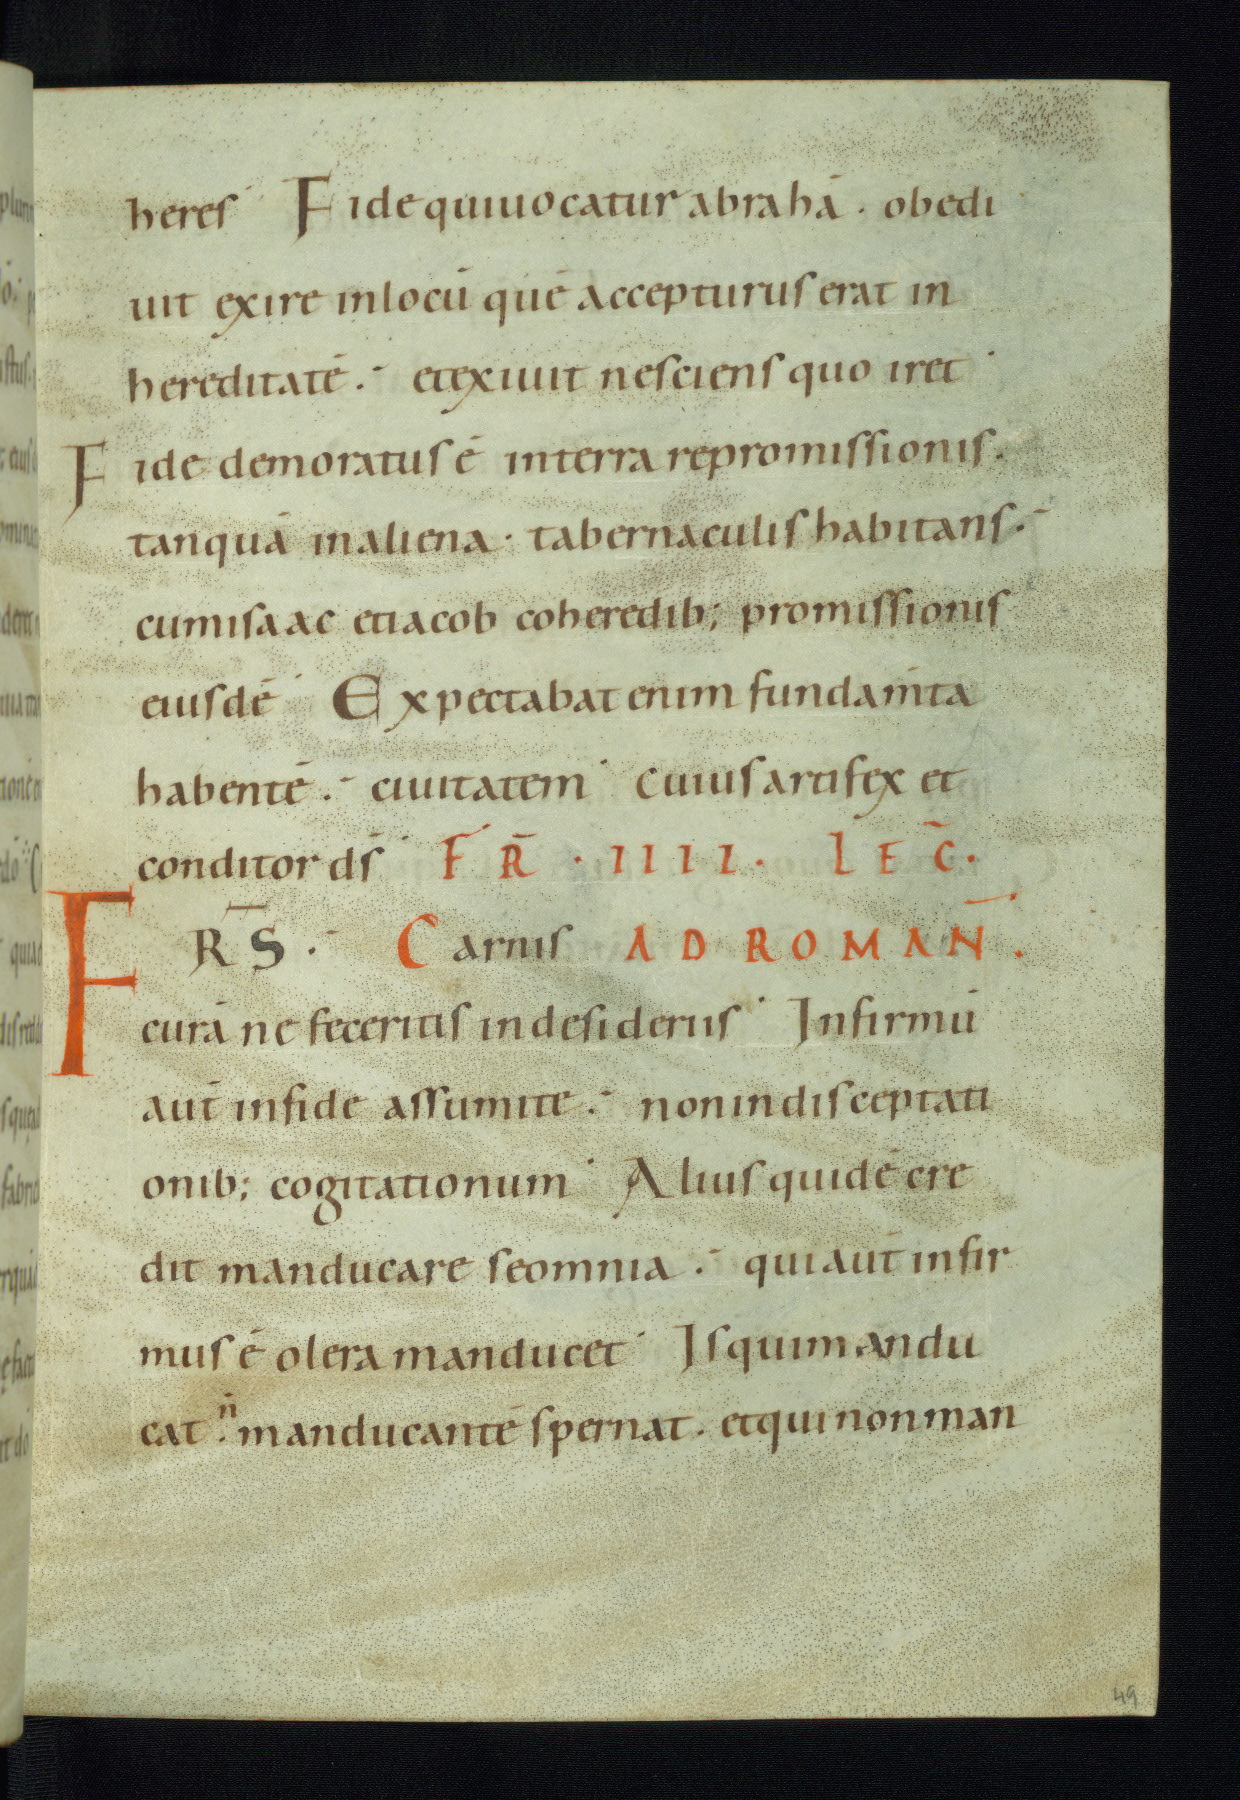 heres Fide qui uocatur abrahā. obedi
uit exire in locū quē accepturus erat in
hereditatē. et exiuit nesciens quo iret
Fide demoratus ē in terra repromissionis.
tanquā in aliena. tabernaculis habitans.
cum isaac et iacob coheredib; promissionis
eiusdē Expectabat enim fundam̄ta
habentē. ciuitatem Cuius artifex et
conditor ds̄ FR̄ · IIII · LEC̄.
FRS̄. Carnis AD ROMAN̄.
curā ne feceritis in desideriis Infirmū
aut̄ in fide assumite. non in disceptati
onib; cogitationum Alius quidē cre
dit manducare se omnia. qui aut̄ infir
mus ē olera manducet Is qui mandu
cat n̄ manducantē spernat. et qui non man
49